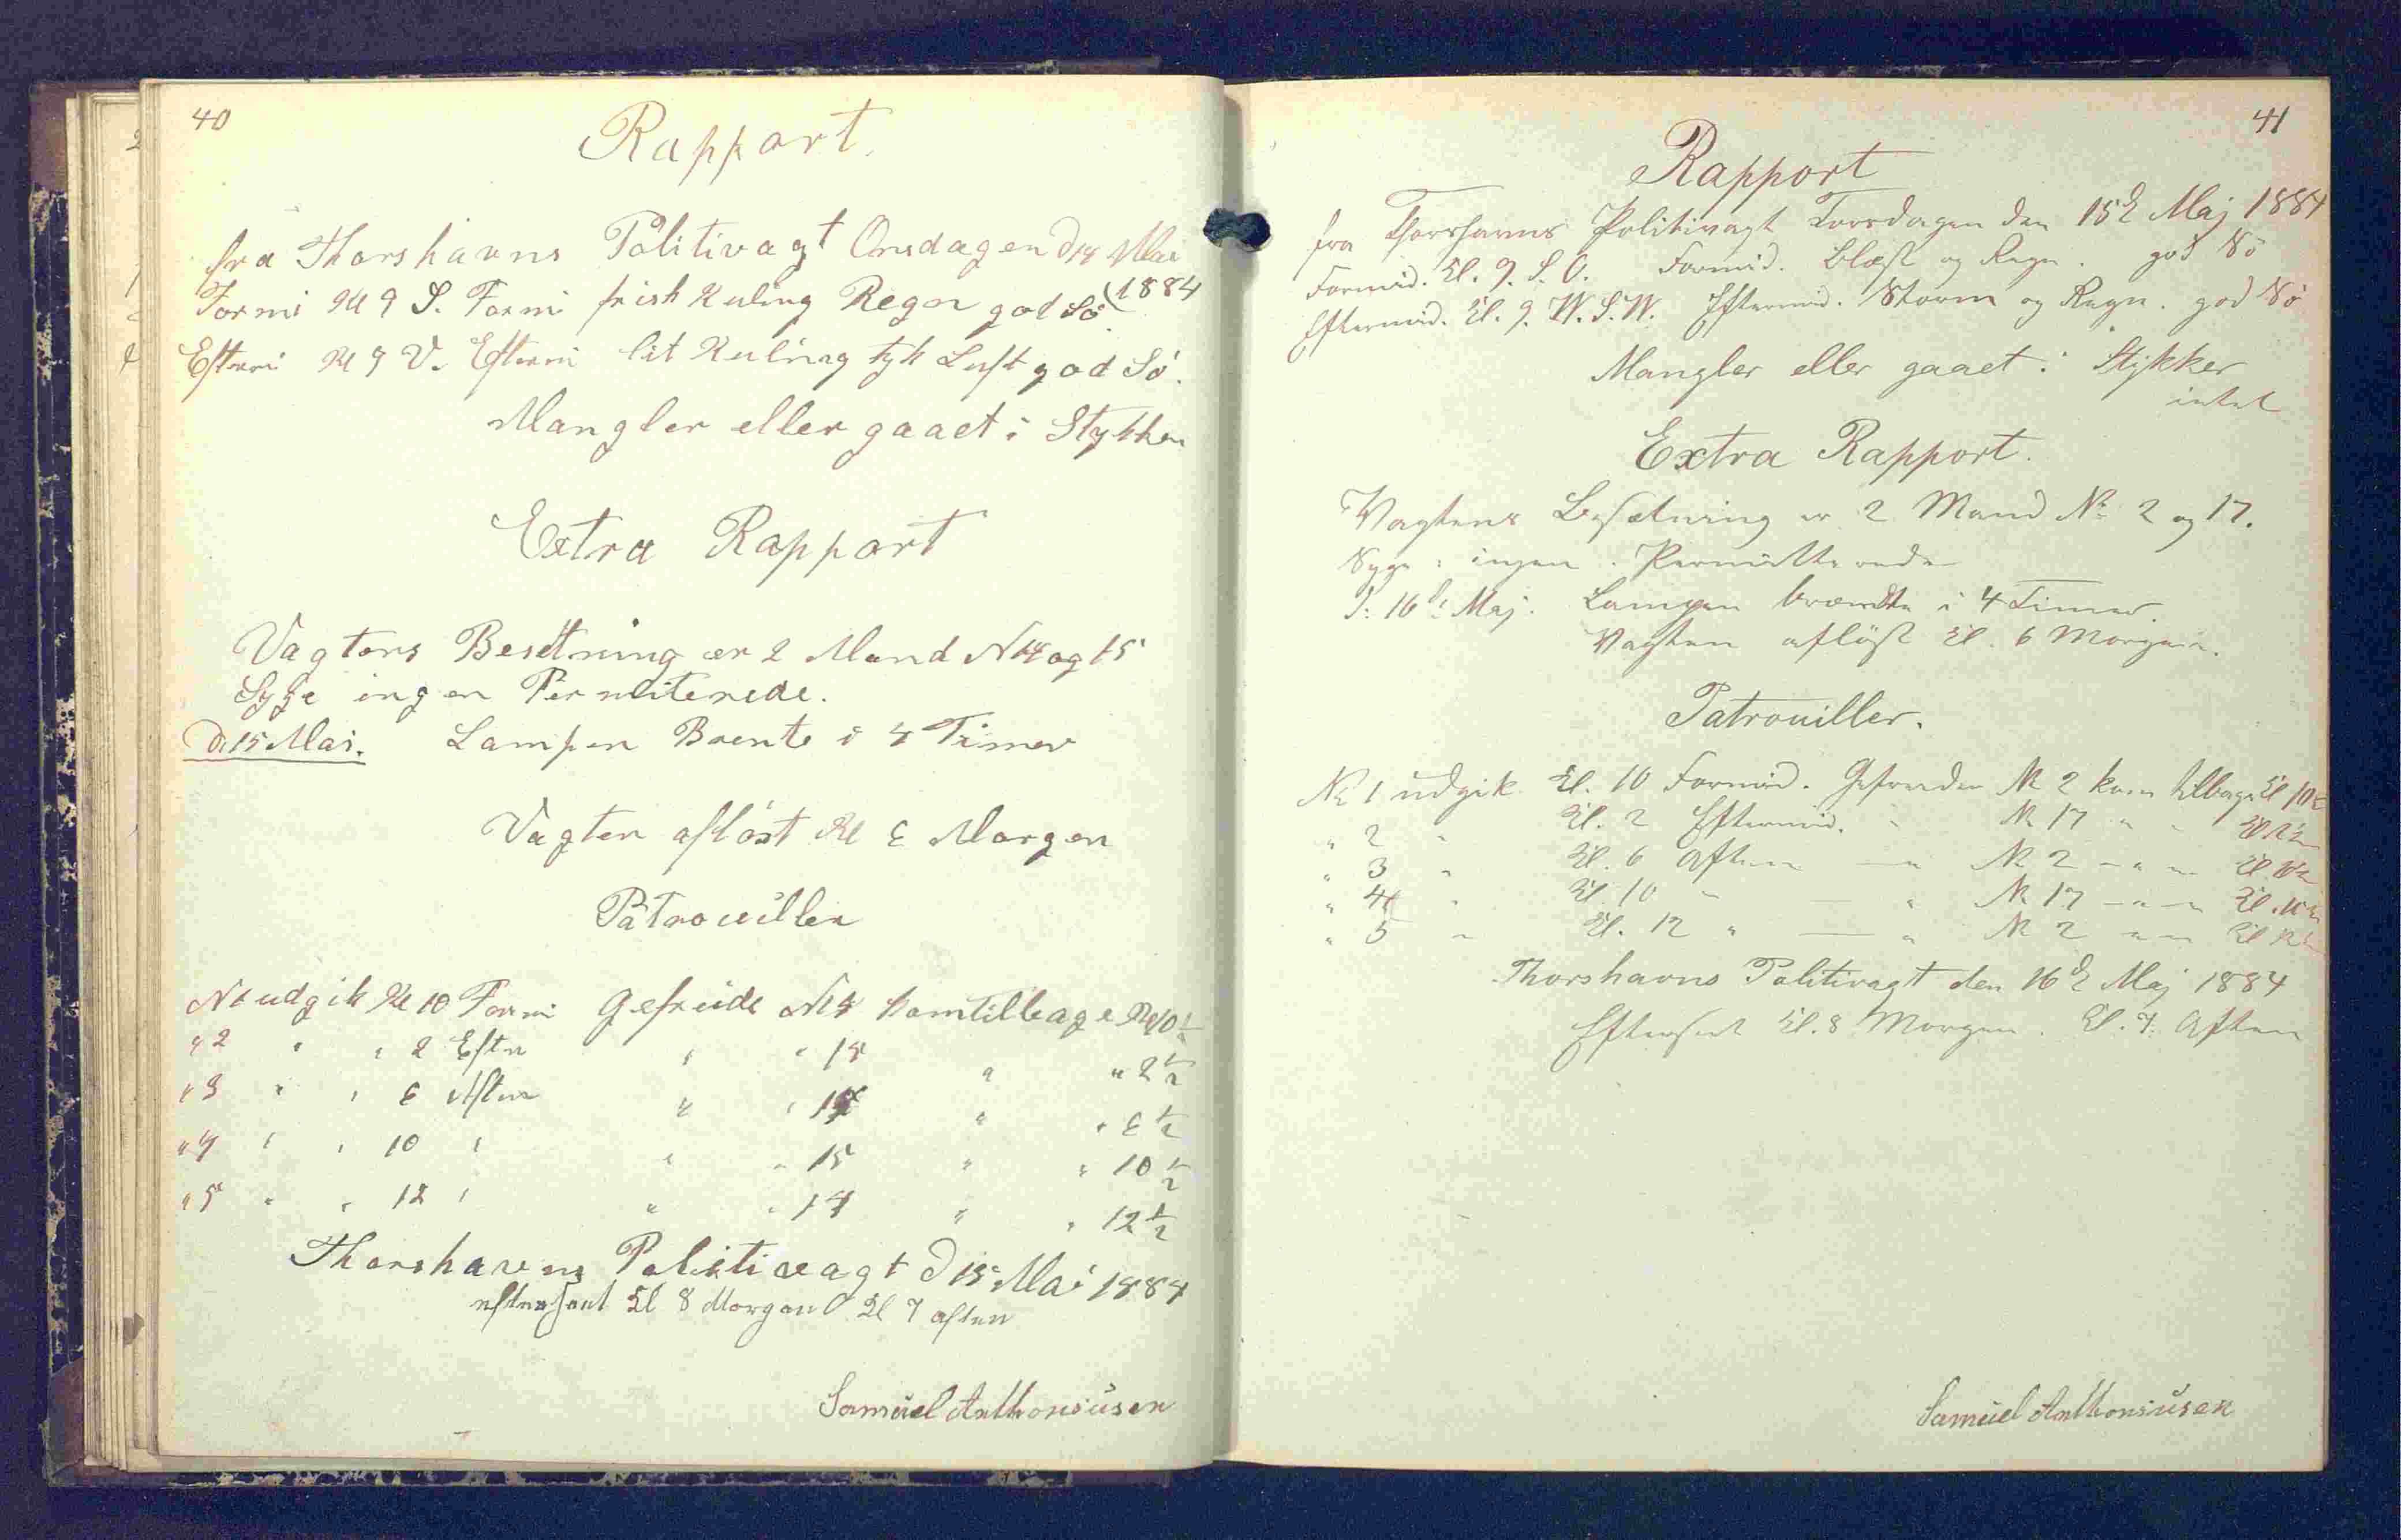 40
Rapport.
fra Thorshavns Politivagt Onsdagen D 14 Mai
1884
Formi Kl 9 S. Formi frisk Kuling Regn god Sö
Efterm Kl 9 V. Efterm lit Kuling tyk Luft god Sö.
Mangler eller gaaet i Stykker
Extra Rapport
Vagtens Besetning er 2 Mand N 14 og 15
Syge ingen Permiterede.
D. 15 Mai. Lampen Brente i 4 Timer
Vagten aflöst Kl 6 Morgen
Patrouiller
N 1 udgik Kl 10 Formi Gefreide N 14 kom tilbage Kl 10 1/2
" 2 " " 2 Efter " " 15 " " 2 1/2
" 3 " " 6 Aften " " 14 " " 6 1/2
" 4 " " 10 " " " 15 " " 10 1/2
" 5 " " 12 " " " 14 " " 12 1/2
Thorshavns Politivagt D 15 Mai 1884
efterseet Kl 8 Morgen Kl 7 aften
Samuel Anthoniusen
41
Rapport
fra Thorshavns Politivagt Torsdagen den 15d Maj 1884
Formid. Kl. 9. S.O. Formid. Blæst og Regn. god Sö
Eftermid. Kl. 9. W.S.W. Eftermid. Storm og Regn. god Sö
Mangler eller gaaet i Stykker
intet
Extra Rapport.
Vagtens Besætning er 2 Mand No 2 og 17.
Syge: ingen. Permitterede
D: 16d Maj. Lampen brændte i 4 Timer.
Vagten aflöst Kl. 6 Morgen.
Patrouiller.
No 1 udgik Kl. 10 Formid. Gefreider No 2 kom tilbage Kl 10 1/2
" 2 " Kl. 2 Eftermid. " No 17 " " Kl 2 1/2
" 3 " Kl. 6 Aften — " No 2 — " — Kl 6 1/2
" 4 " Kl. 10 " — " No 17 — " — Kl. 10 1/2
" 5 " Kl. 12 " — " No 2 " — Kl 12 1/2
Thorshavns Politivagt den 16d Maj 1884
Efterseet Kl. 8 Morgen. Kl. 7. Aften
Samuel Anthoniusen